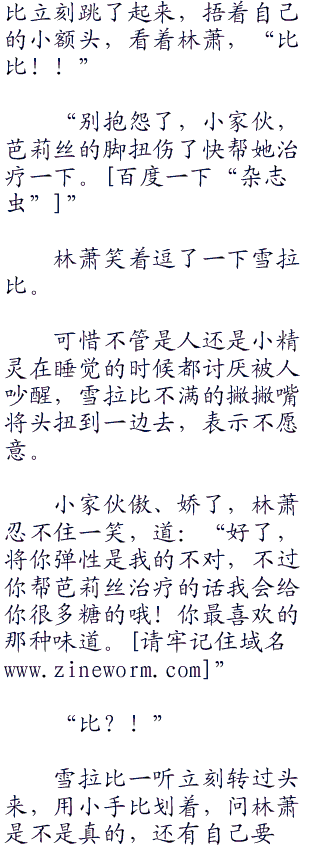 比立刻跳了起来，捂着自己
的小额头，看着林萧，“比
比！！”
“别抱怨了，小家伙，
芭莉丝的脚扭伤了快帮她治
疗一下。[百度一下“杂志
虫”]”
林萧笑着逗了一下雪拉
比。
可惜不管是人还是小精
灵在睡觉的时候都讨厌被人
吵醒，雪拉比不满的撇撇嘴
将头扭到一边去，表示不愿
意。
小家伙傲、娇了，林萧
忍不住一笑，道：“好了，
将你弹性是我的不对，不过
你帮芭莉丝治疗的话我会给
你很多糖的哦！你最喜欢的
那种味道。[请牢记住域名
www.zineworm.com]”
“比？！”
雪拉比一听立刻转过头
来，用小手比划着，问林萧
是不是真的，还有自己要